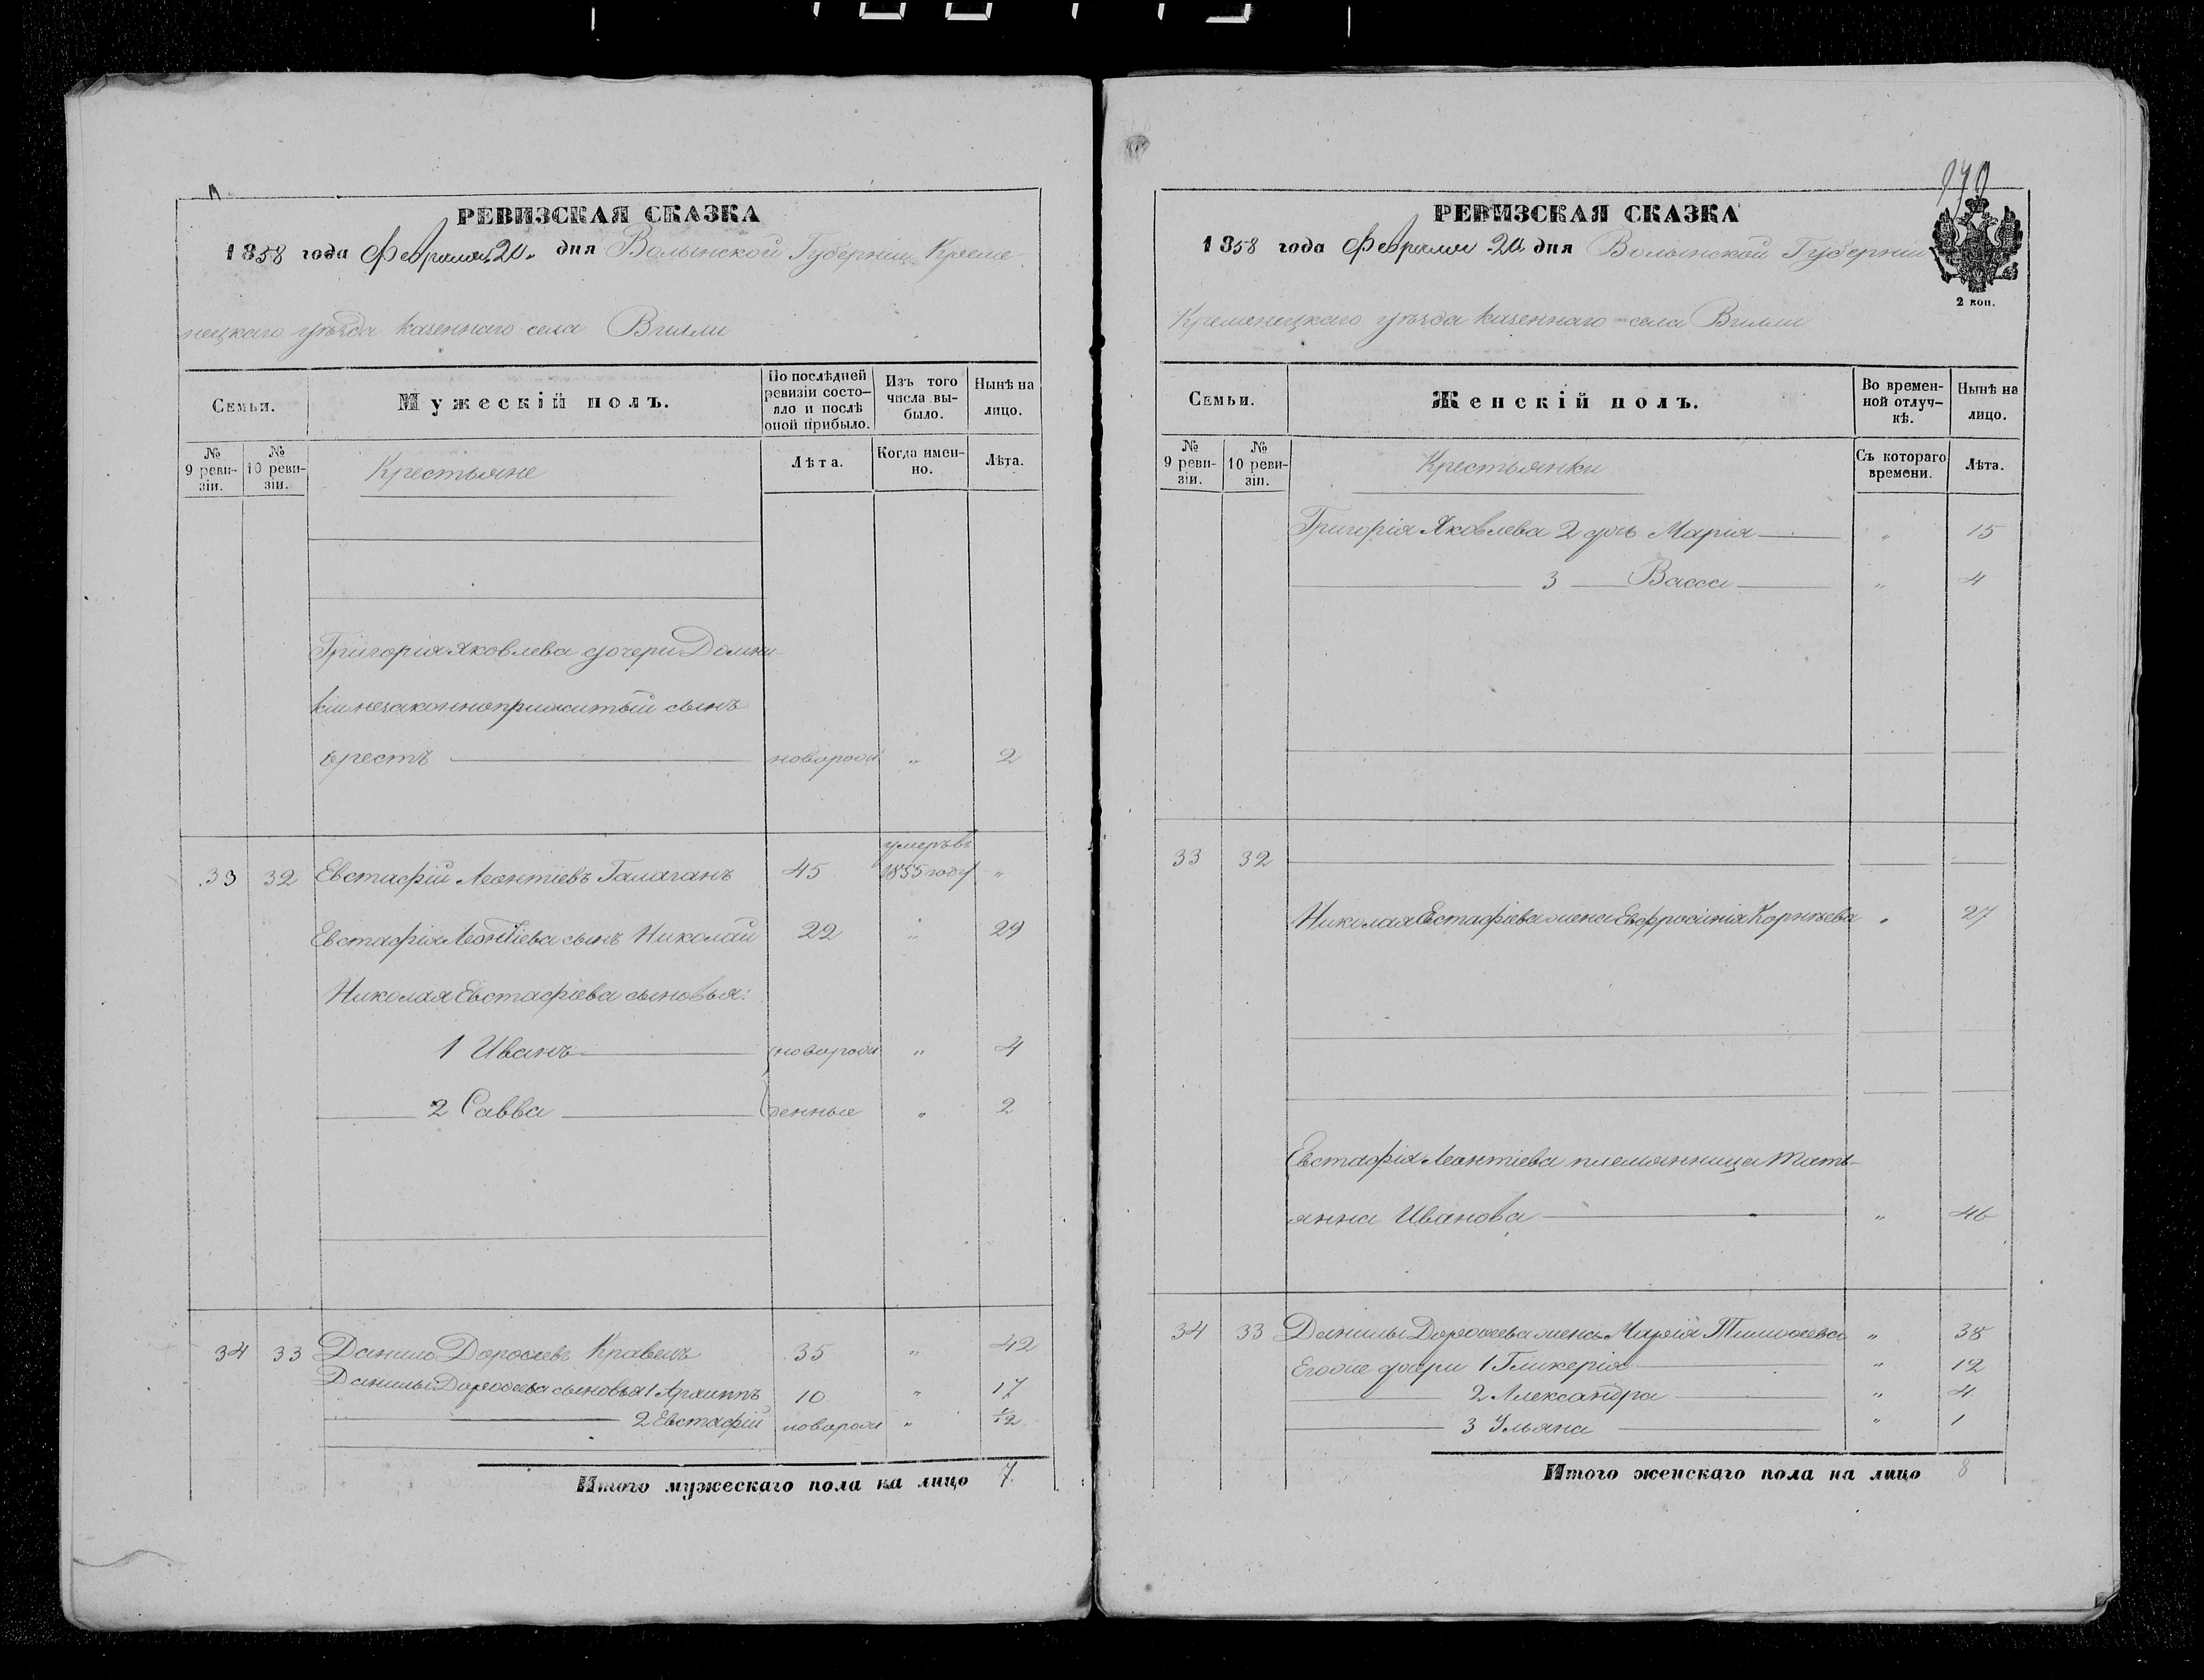 РЕВИЗСКАЯ СКАЗКА
1858 года Февраля 20 дня Волынской Губерніи Креме-
нецкаго уѣзда казеннаго села Вилли
Семьи.
Мужескій полъ.
По послѣдней ревизіи состо-
яло и послѣ оной прибыло.
Изъ того числа вы-
было.
Нынѣ на лицо.
№ 9 реви-
зіи.
№ 10 реви-
зіи.
Крестьяне
Лѣта.
Когда имен-
но.
Лѣта.
Григорія Яковлева дочери Домни-
кіи незаконноприжитый сынъ
Орестъ новорожд " 2
33 32 Евстафій Леонтіевъ Галаганъ 45 умеръ въ 1855 году "
Евстафія Леонтіева сынъ Николай 22 " 29
Николая Евстафіева сыновья:
1 Иванъ новорож " 4
2 Савва денные " 2
34 33 Данило Дорофеевъ Кравецъ 35 " 42
Данилы Дорофеева сыновья 1 Архиппъ 10 " 17
2 Евстафій новорожд " 1/12
Итого мужескаго пола на лицо 7.
170
РЕВИЗСКАЯ СКАЗКА
1858 года Февраля 20 дня Волынской Губерніи
2 коп.
Кременецкаго уѣзда казеннаго села Вилли
Семьи.
Женскій полъ.
Во времен-
ной отлуч-
кѣ.
Нынѣ на лицо.
№ 9 реви-
зіи.
№ 10 реви-
зіи.
Крестьянки
Съ котораго времени.
Лѣта.
Григорія Яковлева 2 дочь Марія " 15
3 Васса " 4
33 32
Николая Евстафіева жена Евфросинія Корнѣева " 27
Евстафія Леонтіева племянница Тать-
янна Иванова " 46
34 33 Данилы Дорофеева жена Марія Тимофеева " 38
Его же дочери 1 Гликерія " 12
2 Александра " 4
3 Ульяна " 1
Итого женскаго пола на лицо 8